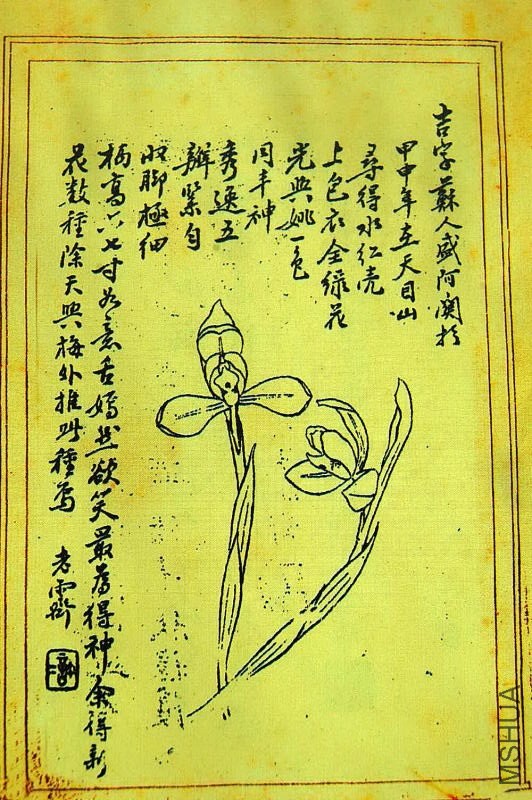 吉字蘇人盛阿關於
甲申年在天目山
尋得水红壳
上包衣全绿花
光與姚一色
同丰神
秀逸五
瓣緊勻
收脚極细
柄高六七寸如意舌嫣然欲笑最爲得神余得新
花数種除天興梅外推此種爲
老霽
MSHUA